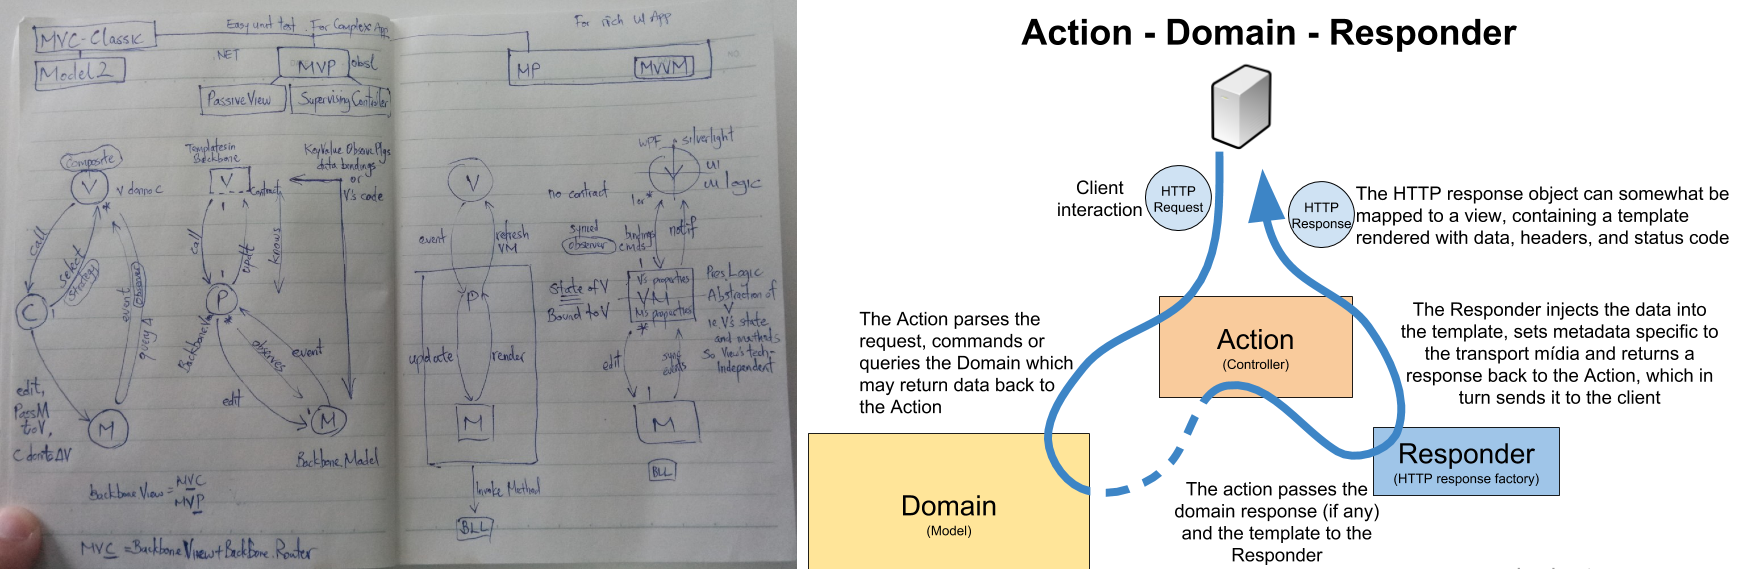 MVC-Classic
Model2
Easy unit test . For Complex App
.NET
MVP
obsl
PassiveView
Supervising Controller
For rich UI App
MP
MVVM
NO
Composite
V
V donno C
call
select
strategy
event
observer
query Δ
C
1
*
edit,
PassM
to V,
C donts ΔV
M
Templates in
Backbone
V
Contract
1
call
updt
knows
1
P
*
BackboneV
observes
event
edit
M
Backbone.Model
KeyValue Observe
data bindings
or
V's code
Backbone View = MVC
MVP
MVC = Backbone View + Backbone.Router
V
event
refresh
VM
P
update
render
M
Invoke Method
BLL
WPF
silverlight
V
UI
UI logic
no contract
1 or *
synced
observer
bindings
cmds
notif
1
State of V
Bound to V
V's properties
VM
M's properties
*
Pres Logic
Abstraction of
V
ie V's state
and methods
So View's tech-
Independent
edit
sync
events
1
M
BLL
Action - Domain - Responder
Client
interaction
HTTP
Request
HTTP
Response
The HTTP response object can somewhat be
mapped to a view, containing a template
rendered with data, headers, and status code
The Action parses the
request, commands or
queries the Domain which
may return data back to
the Action
Action
(Controller)
The Responder injects the data into
the template, sets metadata specific to
the transport mídia and returns a
response back to the Action, which in
turn sends it to the client
Domain
(Model)
Responder
(HTTP response factory)
The action passes the
domain response (if any)
and the template to the
Responder